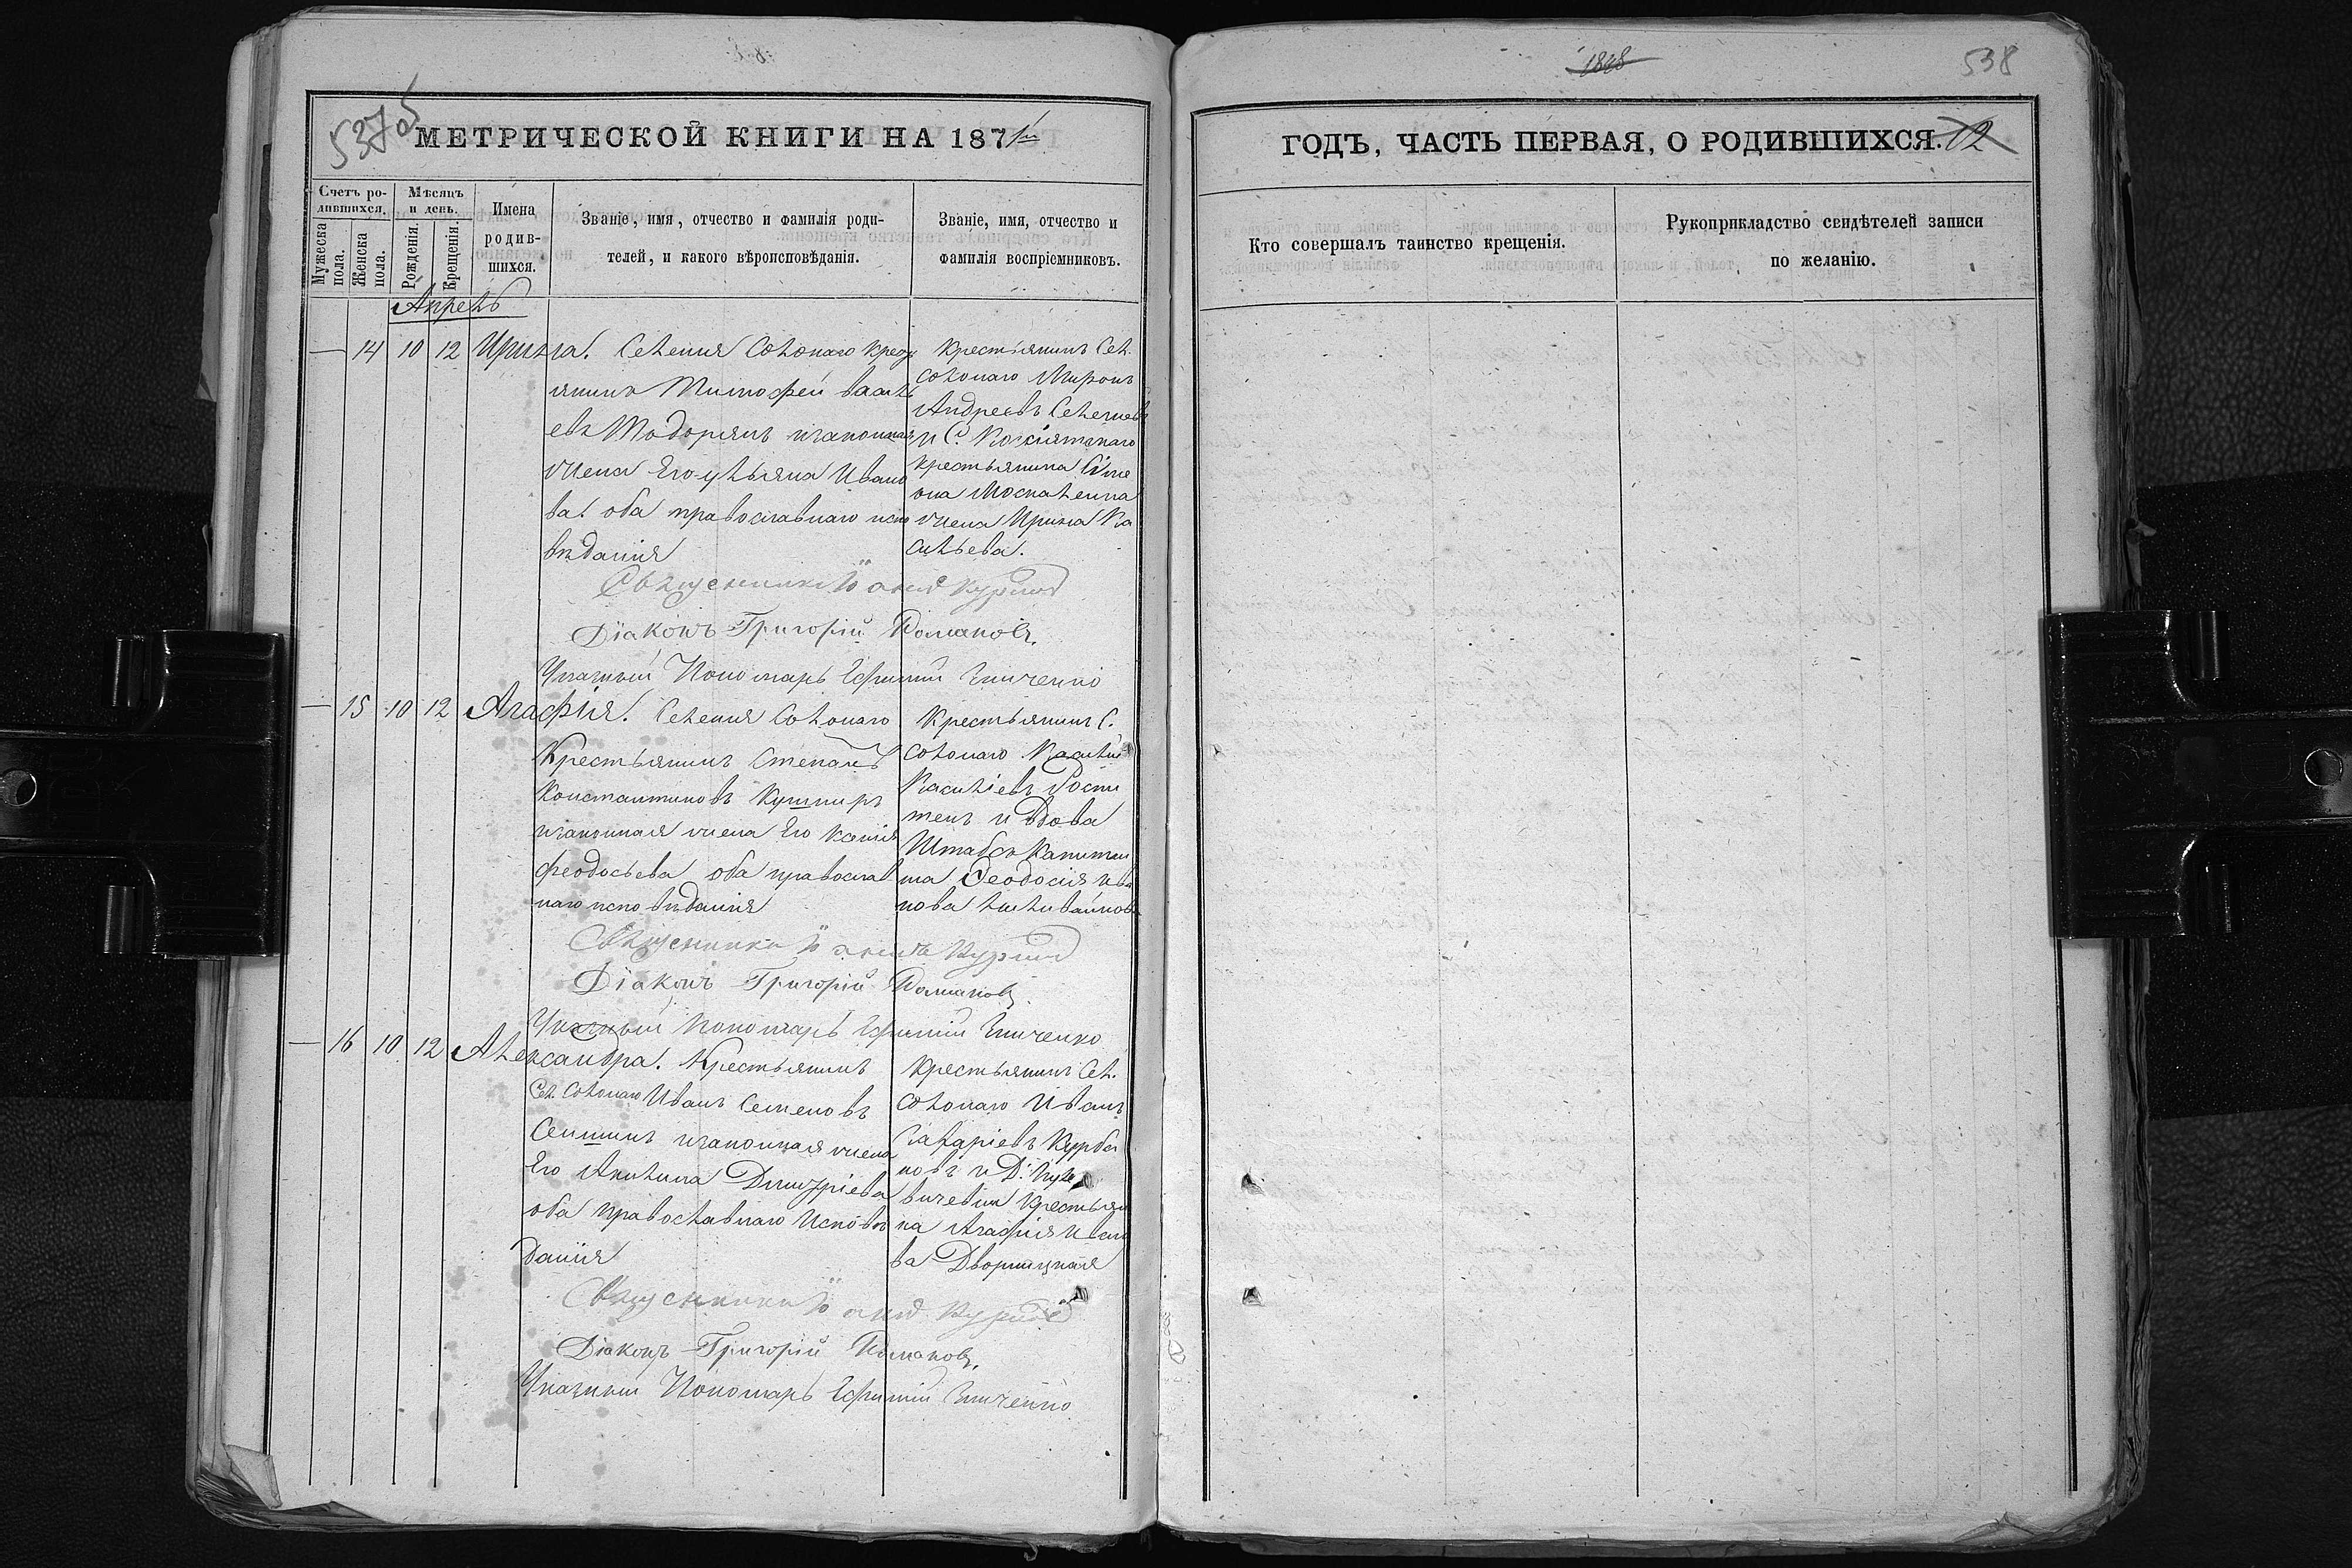 537об
МЕТРИЧЕСКОЙ КНИГИ НА 1871й
Счетъ ро-
дившихся.
Мужеска
пола.
Женска
пола.
Мѣсяцъ
и день.
Рожденія.
Крещенія.
Имена
родив-
шихся.
Званіе, имя, отчество и фамилія роди-
телей, и какого вѣроисповѣданія.
Званіе, имя, отчество и
фамилія воспріемниковъ.
Апрель
— 14 10 12 Ирина. Селенія Солонаго крест
янинъ Тимофей Василь
евъ Тодорянъ изаконная
жена Его ульяна Ивано
ва. оба православнаго испо
вѣданія
Крестьянинъ Сел.
Солонаго Миронъ
Андреевъ
и С.
крестьянина Симе
она Москаленка
жена Ирина Ва
сильева.
Священникъ Іоаннъ
Діаконъ Григорій Романовъ.
Указный Пономарь Ефимій
— 15 10 12 Агафія. Селенія Солонаго
Крестьянинъ Степанъ
Константиновъ Кушниръ
изаконная жена Его Ксенія
Феодосьева оба православ
наго исповѣданія
Крестьянинъ С.
Солонаго Василій
Васильевъ
и вдова
Штабсъ Капитан
ша Феодосія Ива
нова
Священникъ Іоаннъ
Діаконъ Григорій Романовъ
Указный Пономарь Ефимій
— 16 10 12 Александра. Крестьянинъ
Сел. Солонаго Иванъ Семеновъ
изаконная жена
Его Акилина Димитріева
оба православнаго Исповѣ
данія
Крестьянинъ Сел.
Солонаго Иванъ
Захаріевъ Курба
новъ и Д.
крестьян
ка Агафія Ивано
ва Дворницкая
Священникъ Іоаннъ
Діаконъ Григорій Романовъ.
Указный Пономарь Ефимій
1848
538
ГОДЪ, ЧАСТЬ ПЕРВАЯ, О РОДИВШИХСЯ. 12
Кто совершалъ таинство крещенія.
Рукоприкладство свидѣтелей записи
по желанію.